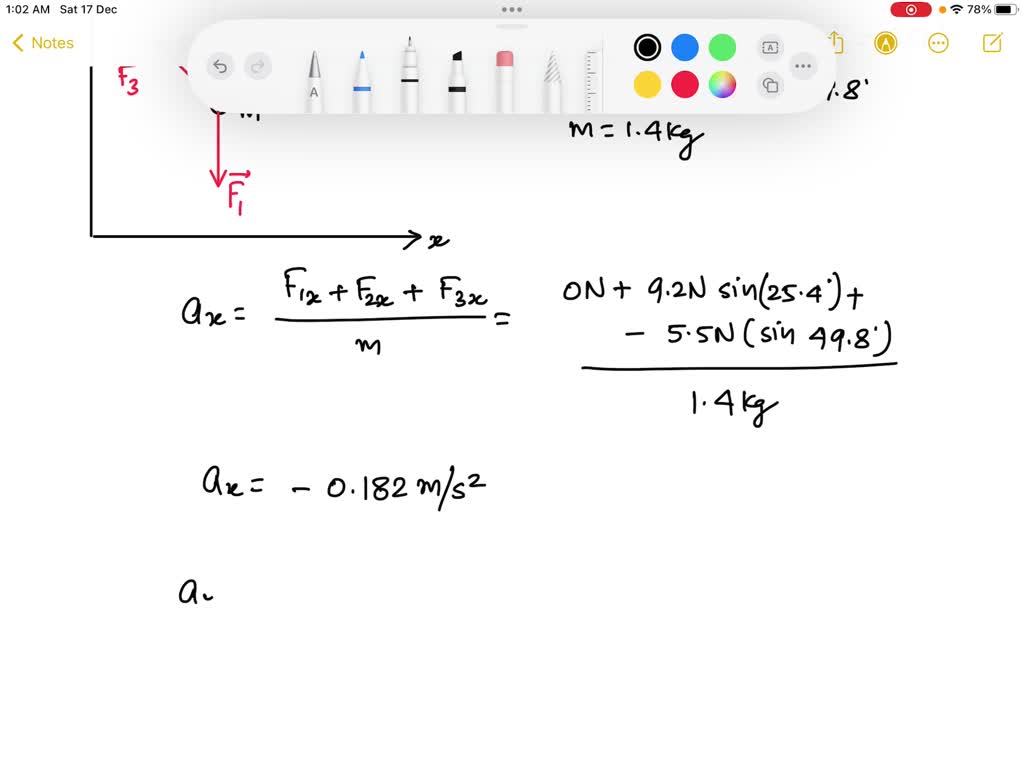 1:02 AM Sat 17 Dec
78%
Notes
A
A
F3
m
.8°
m = 1.4 kg
F1
x
ax = F1x + F2x + F3x / m = 0N + 9.2N sin(25.4°) +
- 5.5N (sin 49.8°)
1.4 kg
ax = - 0.182 m/s²
a